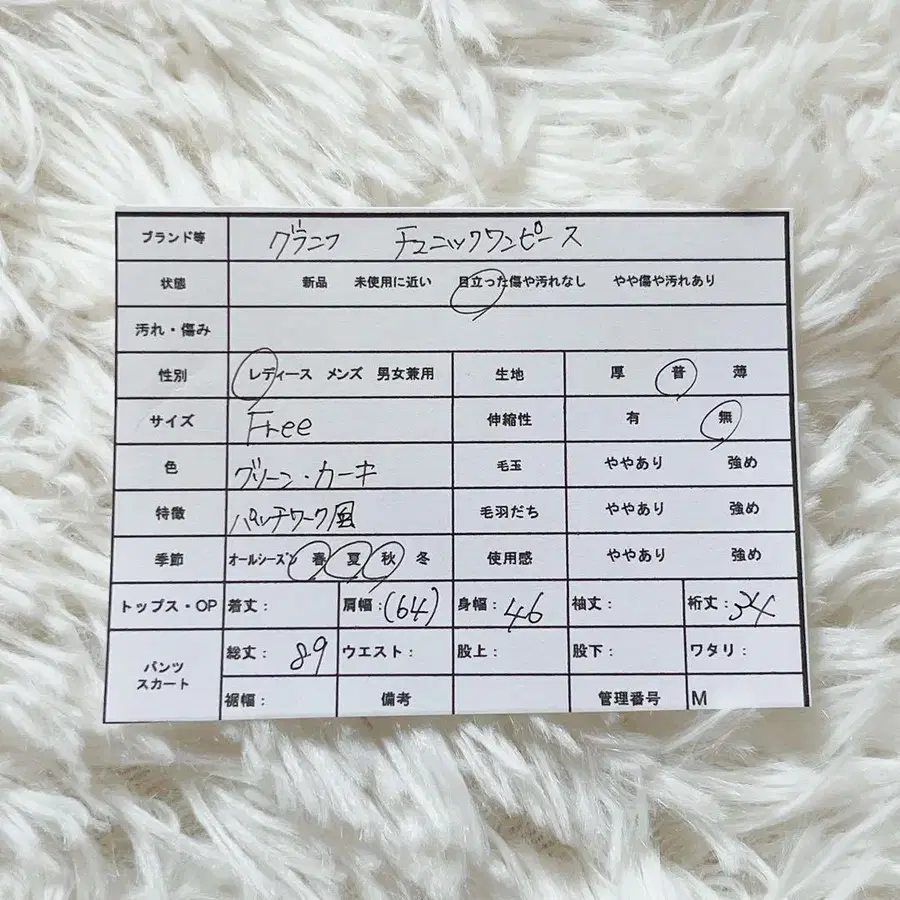 ブランド等 グラニフ チュニックワンピース
状態 新品 未使用に近い 目立った傷や汚れなし やや傷や汚れあり
汚れ・傷み
性別 レディース メンズ 男女兼用 生地 厚 普 薄
サイズ Free 伸縮性 有 無
色 グリーン・カーキ 毛玉 ややあり 強め
特徴 パッチワーク風 毛羽だち ややあり 強め
季節 オールシーズン 春 夏 秋 冬 使用感 ややあり 強め
トップス・OP 着丈: 肩幅:(64) 身幅:46 袖丈: 裄丈:34
パンツ スカート 総丈: 89 ウエスト: 股上: 股下: ワタリ:
裾幅: 備考 管理番号 M